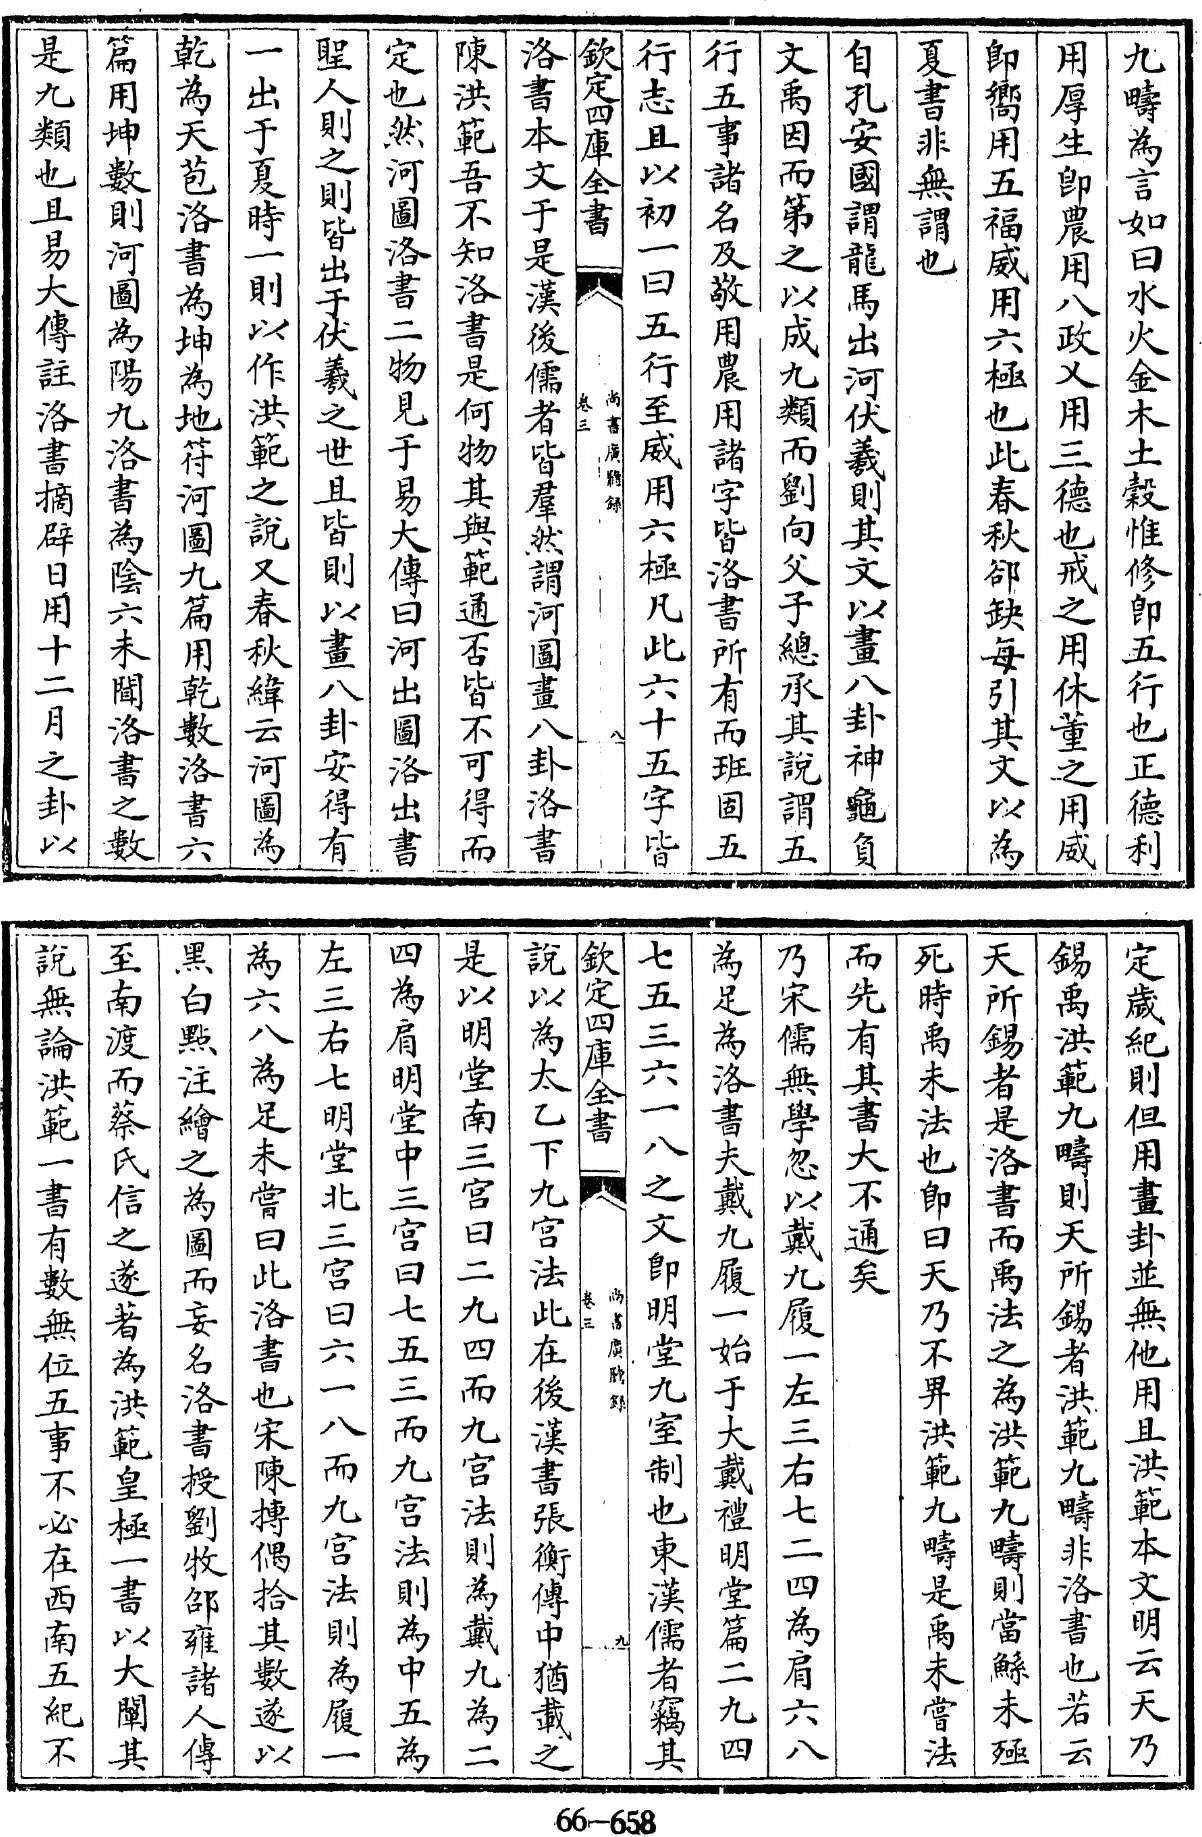 九疇為言如曰水火金木土榖惟修即五行也正德利
用厚生即農用八政乂用三德也戒之用休董之用威
即嚮用五福威用六極也此春秋郤缺每引其文以為
夏書非無謂也
自孔安國謂龍馬出河伏羲則其文以畫八卦神龜負
文禹因而第之以成九類而劉向父子總承其說謂五
行五事諸名及敬用農用諸字皆洛書所有而班固五
行志且以初一曰五行至威用六極凡此六十五字皆
欽定四庫全書
尚書廣聽錄
卷三
八
洛書本文于是漢後儒者皆羣然謂河圖畫八卦洛書
陳洪範吾不知洛書是何物其與範通否皆不可得而
定也然河圖洛書二物見于易大傳曰河出圖洛出書
聖人則之則皆出于伏羲之世且皆則以畫八卦安得有
一出于夏時一則以作洪範之說又春秋緯云河圖為
乾為天苞洛書為坤為地符河圖九篇用乾數洛書六
篇用坤數則河圖為陽九洛書為陰六未聞洛書之數
是九類也且易大傳註洛書摘辟日用十二月之卦以
定歲紀則但用畫卦並無他用且洪範本文明云天乃
錫禹洪範九疇則天所錫者洪範九疇非洛書也若云
天所錫者是洛書而禹法之為洪範九疇則當鯀未殛
死時禹未法也即曰天乃不畀洪範九疇是禹未嘗法
而先有其書大不通矣
乃宋儒無學忽以戴九履一左三右七二四為肩六八
為足為洛書夫戴九履一始于大戴禮明堂篇二九四
七五三六一八之文即明堂九室制也東漢儒者竊其
欽定四庫全書
尚書廣聽錄
卷三
九
說以為太乙下九宮法此在後漢書張衡傳中猶載之
是以明堂南三宮曰二九四而九宮法則為戴九為二
四為肩明堂中三宮曰七五三而九宮法則為中五為
左三右七明堂北三宮曰六一八而九宮法則為履一
為六八為足未嘗曰此洛書也宋陳摶偶拾其數遂以
黑白點注繪之為圖而妄名洛書授劉牧邵雍諸人傳
至南渡而蔡氏信之遂著為洪範皇極一書以大闡其
說無論洪範一書有數無位五事不必在西南五紀不
66-658